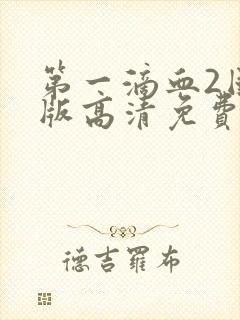 第一滴血2
版高清免费
德吉羅布